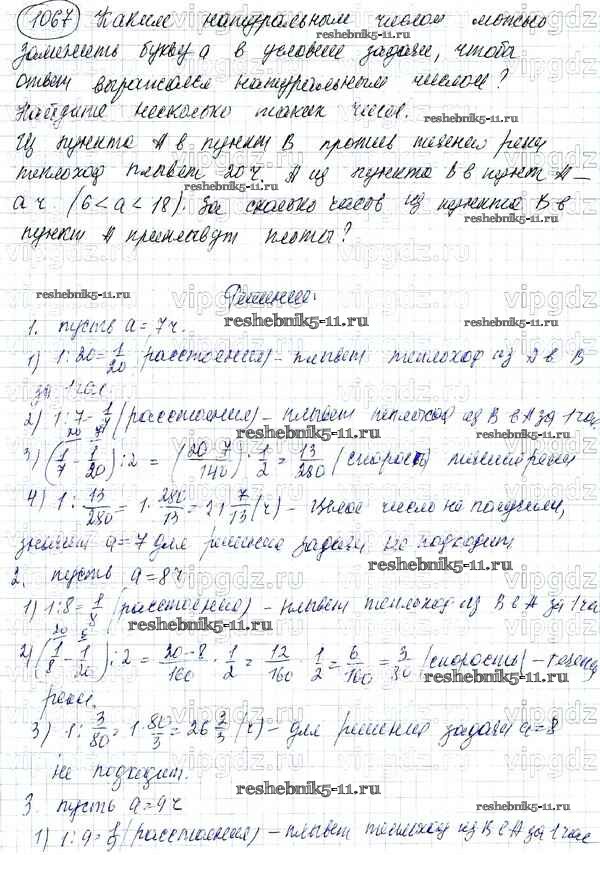 1067 Каким натуральным числом можно
заменить букву а в условии задачи, чтобы
ответ выражался натуральным числом?
Найдите несколько таких чисел.
reshebnik5-11.ru
Из пункта А в пункт В против течения реки
теплоход плывет 20 ч. А из пункта В в пункт А –
а ч (6 < а < 18). За сколько часов из пункта В в
пункт А приплывут плоты?
reshebnik5-11.ru
Решение:
reshebnik5-11.ru
reshebnik5-11.ru
1. пусть а = 7 ч.
1) 1 : 20 = 1/20 (расстояния) – плывет теплоход из А в В
за 1 час.
2) 1 : 7 = 1/7 (расстояния) – плывет теплоход из В в А за 1 час
3) (1/7 - 1/20) : 2 = (20-7/140) · 1/2 = 13/280 (скорость) течения реки
4) 1 : 13/280 = 1 · 280/13 = 21 7/13 (ч) – целое число не получили,
reshebnik5-11.ru
значит а = 7 для решения задачи не подходит
2. пусть а = 8 ч
reshebnik5-11.ru
1) 1 : 8 = 1/8 (расстояния) – плывет теплоход из В в А за 1 час
reshebnik5-11.ru
2) (1/8 - 1/20) : 2 = 20-8/160 · 1/2 = 12/160 · 1/2 = 6/160 = 3/80 (скорость) – течения
реки.
reshebnik5-11.ru
3) 1 : 3/80 = 1 · 80/3 = 26 2/3 (ч) – для решения задачи а = 8
не подходит.
reshebnik5-11.ru
3. пусть а = 9 ч
reshebnik5-11.ru
1) 1 : 9 = 1/9 (расстояния) – плывет теплоход из В в А за 1 час